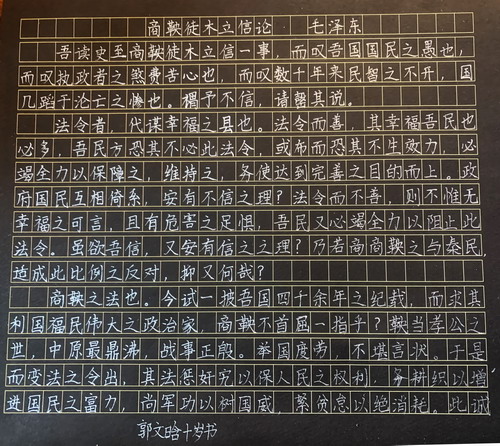 商鞅徒木立信论 毛泽东
吾读史至商鞅徒木立信一事,而叹吾国国民之愚也,
而叹执政者之煞费苦心也,而叹数十年来民智之不开,国
几蹈于沦亡之惨也。予不信,请罄其说。
法令者,代谋幸福之具也。法令而善,其幸福吾民也
必多,吾民方恐其不心此法令,或布而恐其不生效力,必
竭全力以保障之,维持之,务使达到完善之目的而上。政
府国民互相倚系,安有不信之理?法令而不善,则不惟无
幸福之可言,且有危害之足惧,吾民又必竭全力以阻止此
法令。虽欲吾信,又安有信之之理?乃若商商鞅之与秦民,
适成此比例之反对,抑又何哉?
商鞅之法也。今试一披吾国四十余年之纪载,而求其
利国福民伟大之政治家,商鞅不首屈一指乎?鞅当孝公之
世,中原最鼎沸,战事正殷。举国疲劳,不堪言状。于是
而变法之令出,其法惩奸宄以保人民之权利,务耕织以增
进国民之富力,尚军功以树国威,孥贫怠以绝消耗。此诚
郭文晗十岁书